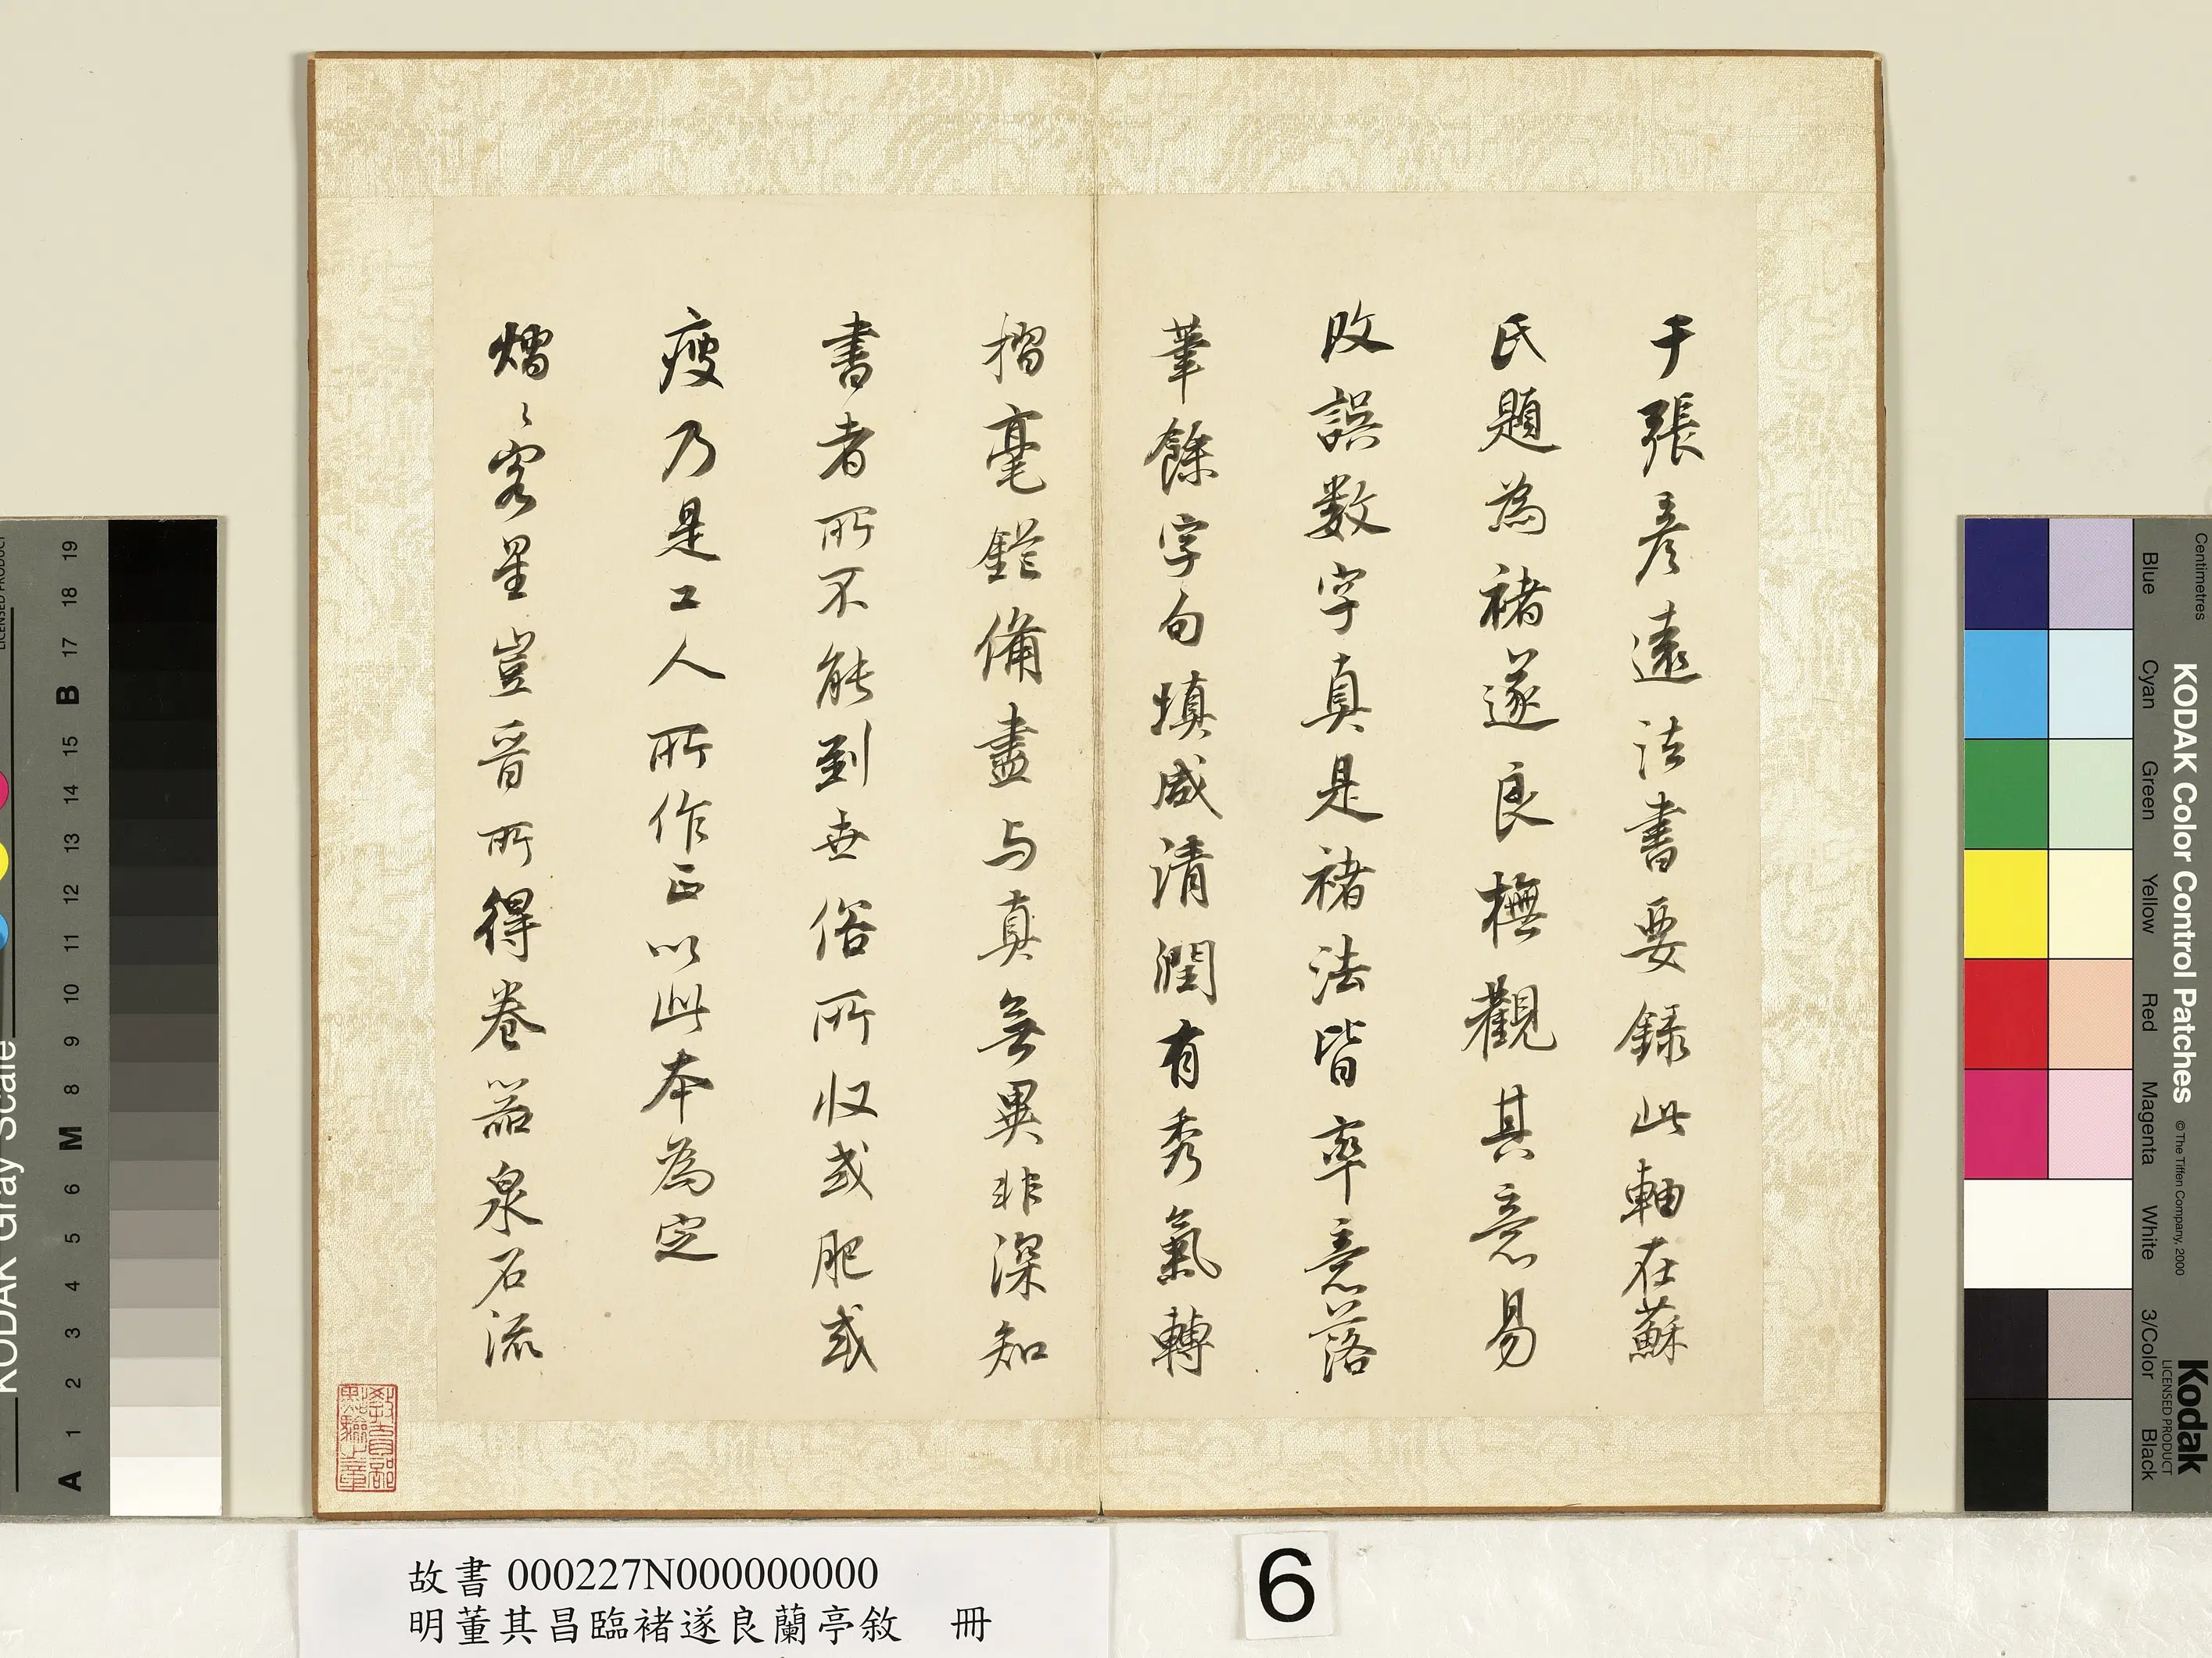 于張彥遠法書要録此軸在蘇
氏題為褚遂良橅觀其意易
改誤数字真是褚法皆率意落
筆餘字勾填咸清潤有秀氣轉
摺毫鋩備盡与真無異非深知
書者所不能到世俗所收或肥或
瘦乃是工人所作正以此本為定
熠〻客星豈晉所得卷器泉石流
教育部點驗之章
故書 000227N000000000
明董其昌臨褚遂良蘭亭敘 冊
6
KODAK Gray Scale
LICENSED PRODUCT
A 1 2 3 4 5 6 M 8 9 10 11 12 13 14 15 B 17 18 19
KODAK Color Control Patches © The Tiffen Company, 2000
Kodak
LICENSED PRODUCT
Centimetres
Blue Cyan Green Yellow Red Magenta White 3/Color Black